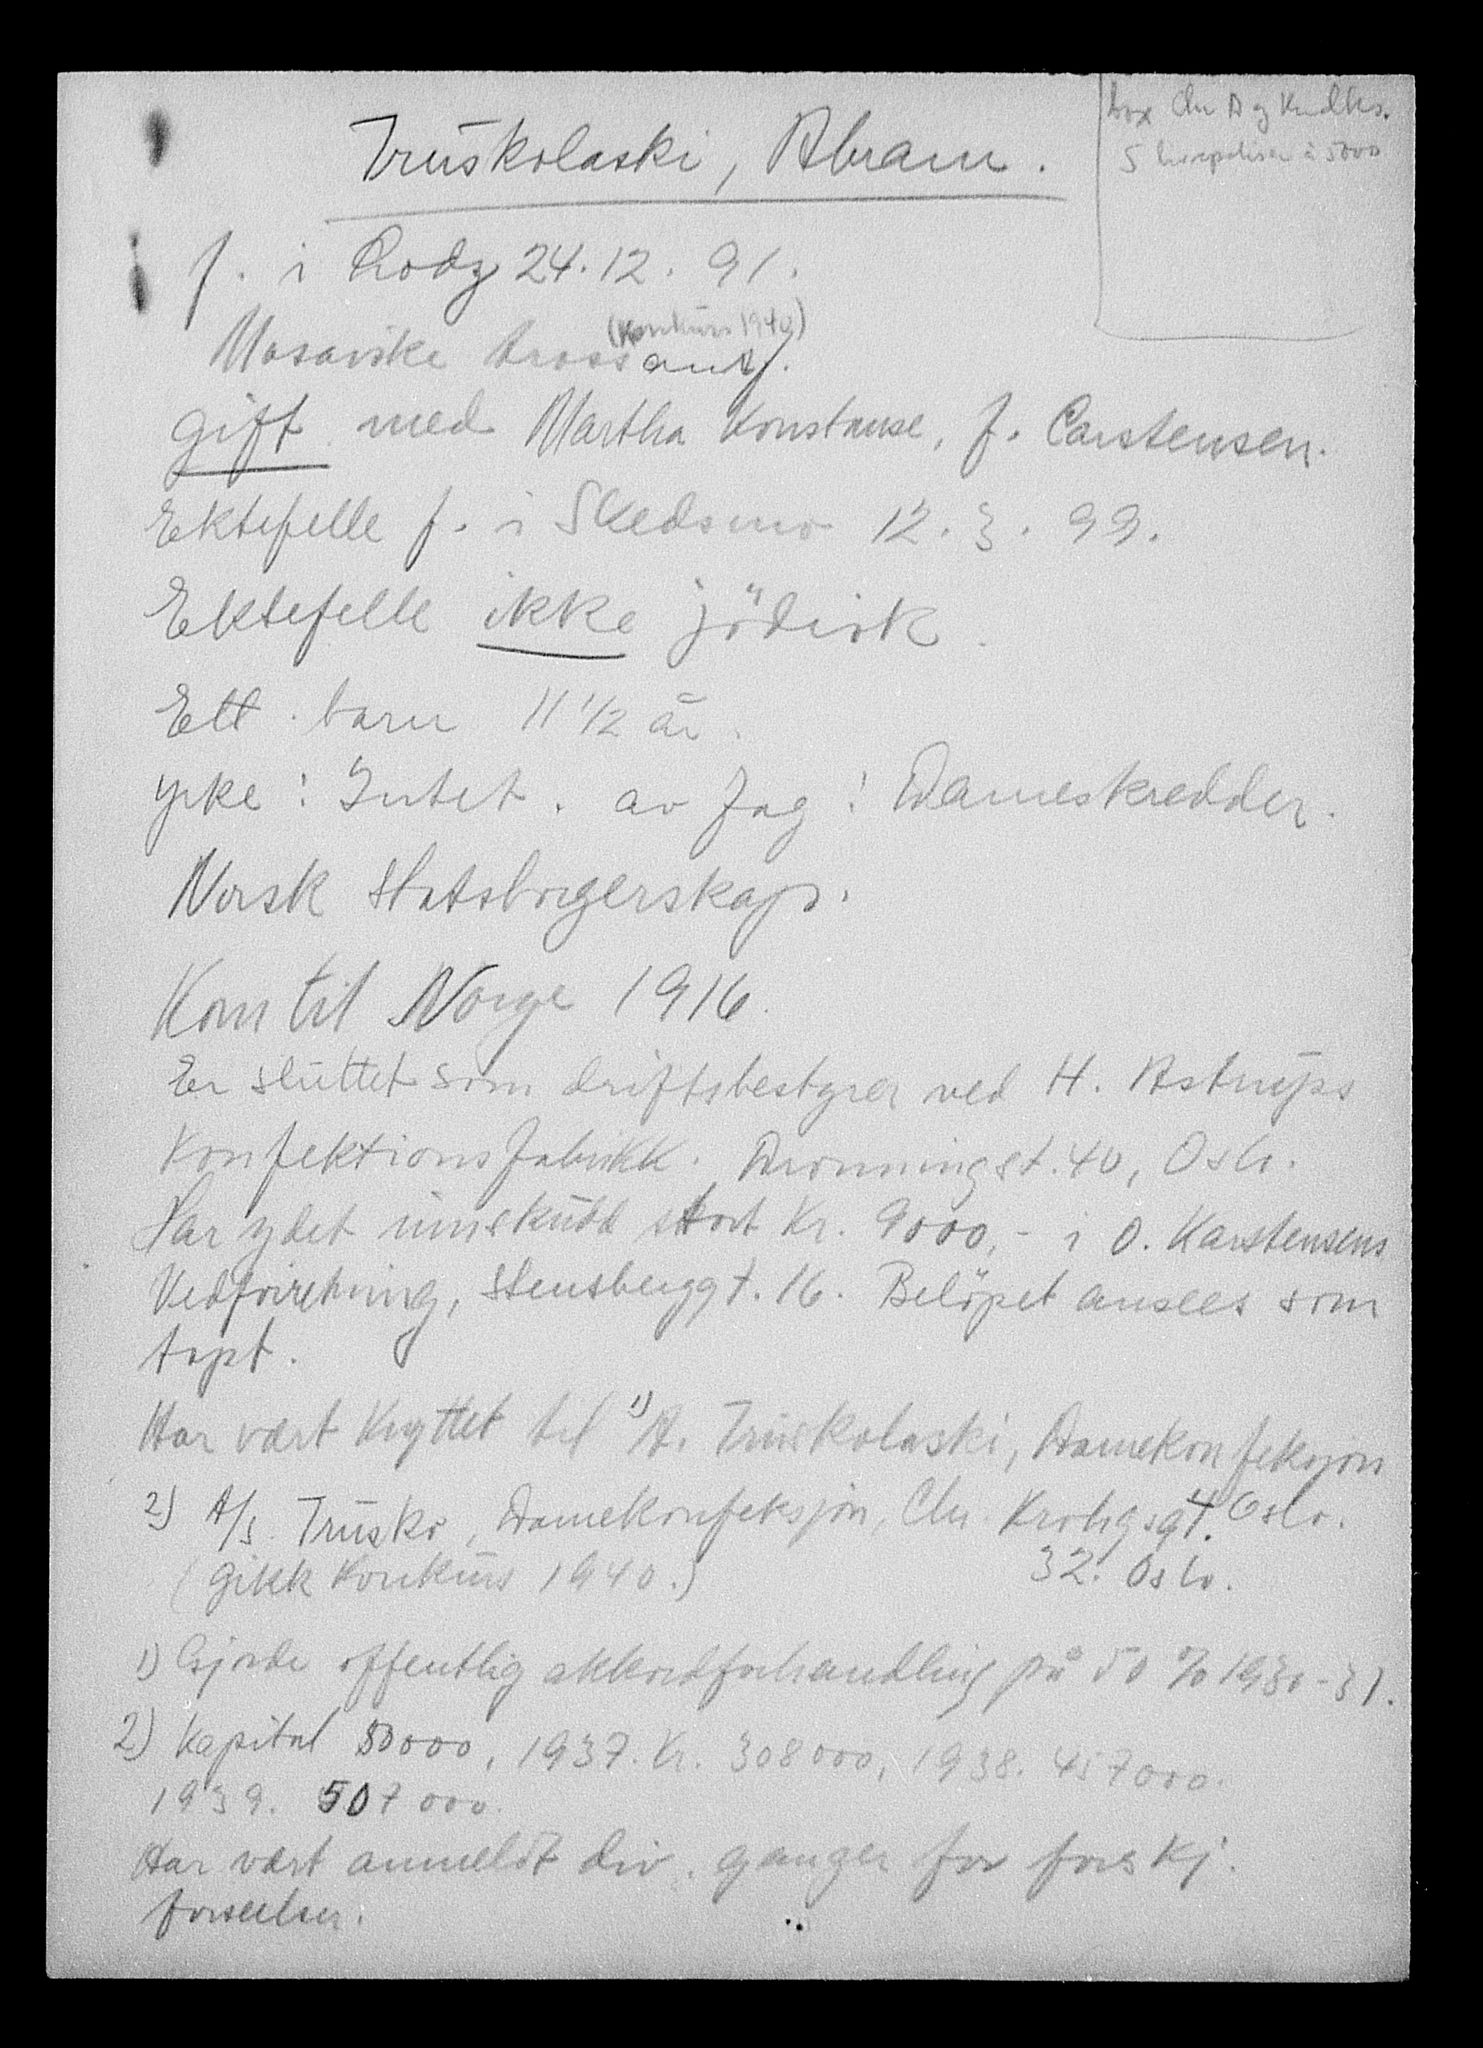 Box Chr B og Kredks.
5 livspoliser à 5000
Truskolaski, Abram.
f. i Lrodz 24.12.91.
(Konkurs 1940)
Mosaiske trossamf.
gift med Martha Konstanse, f. Carstensen.
Ektefelle f. i Skedsmo 12.3.99.
Ektefelle ikke jödisk.
Ett barn 11 1/2 år.
yrke: Intet. av fag: Dameskredder.
Norsk statsborgerskap.
Kom til Norge 1916.
Er sluttet som driftsbestyrer ved H. Astrups
Konfektionsfabrikk. Dronningsgt. 40, Oslo.
Har ydet innskudd stort Kr. 9000,- i O. Karstensens
Vedforretning, Stensberggt. 16. Belöpet ansees som
tapt.
Har vært knyttet til 1) A. Truskolaski, Damekonfeksjon
2) A/S. Trusko, Damekonfeksjon, Chr. Krohgsgt. Oslo.
(gikk konkurs 1940.) 32. Oslo.
1) Gjorde offentlig akkordforhandling på 50 % 1930-31.
2) Kapital 50000, 1937. Kr. 308000, 1938. 457000.
1939. 507000.
Har vært anmeldt div. ganger for forskj.
forseelser.